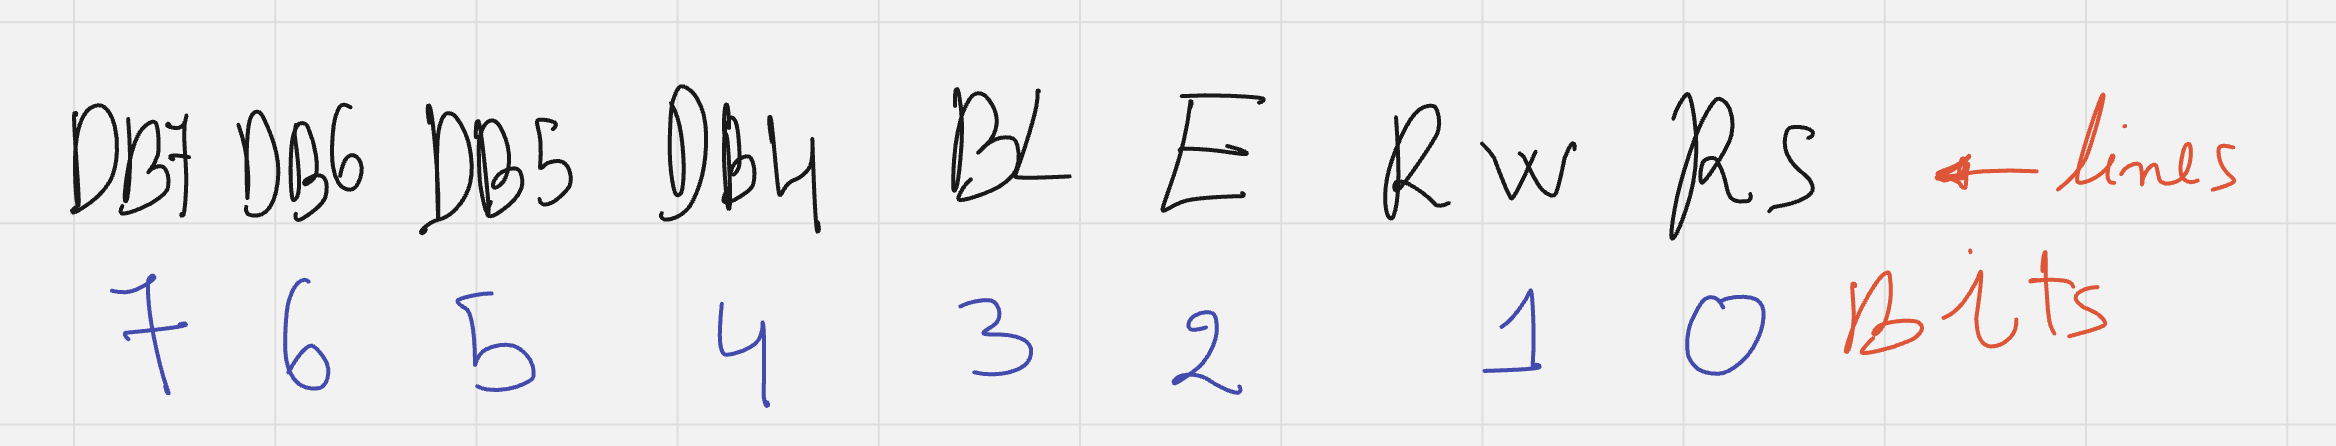 DB7 DB6 DB5 DB4 BL E RW RS ← lines
7 6 5 4 3 2 1 0 Bits